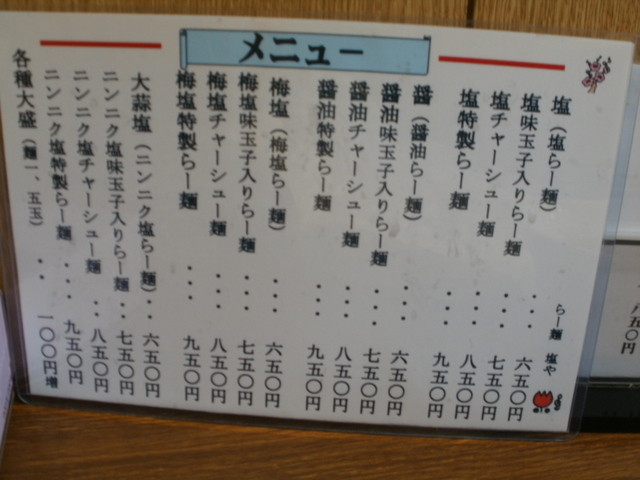 メニュー
塩（塩らー麺）・・・六五〇円
塩味玉子入りらー麺・・・七五〇円
塩チャーシュー麺・・・八五〇円
塩特製らー麺・・・九五〇円
醤（醤油らー麺）・・・六五〇円
醤油味玉子入りらー麺・・・七五〇円
醤油チャーシュー麺・・・八五〇円
醤油特製らー麺・・・九五〇円
梅塩（梅塩らー麺）・・・六五〇円
梅塩味玉子入りらー麺・・・七五〇円
梅塩チャーシュー麺・・・八五〇円
梅塩特製らー麺・・・九五〇円
大蒜塩（ニンニク塩らー麺）・・六五〇円
ニンニク塩味玉子入りらー麺・・七五〇円
ニンニク塩チャーシュー麺・・八五〇円
ニンニク塩特製らー麺・・・九五〇円
各種大盛（麺一、五玉）・・一〇〇円増
らー麺 塩や
八五〇円